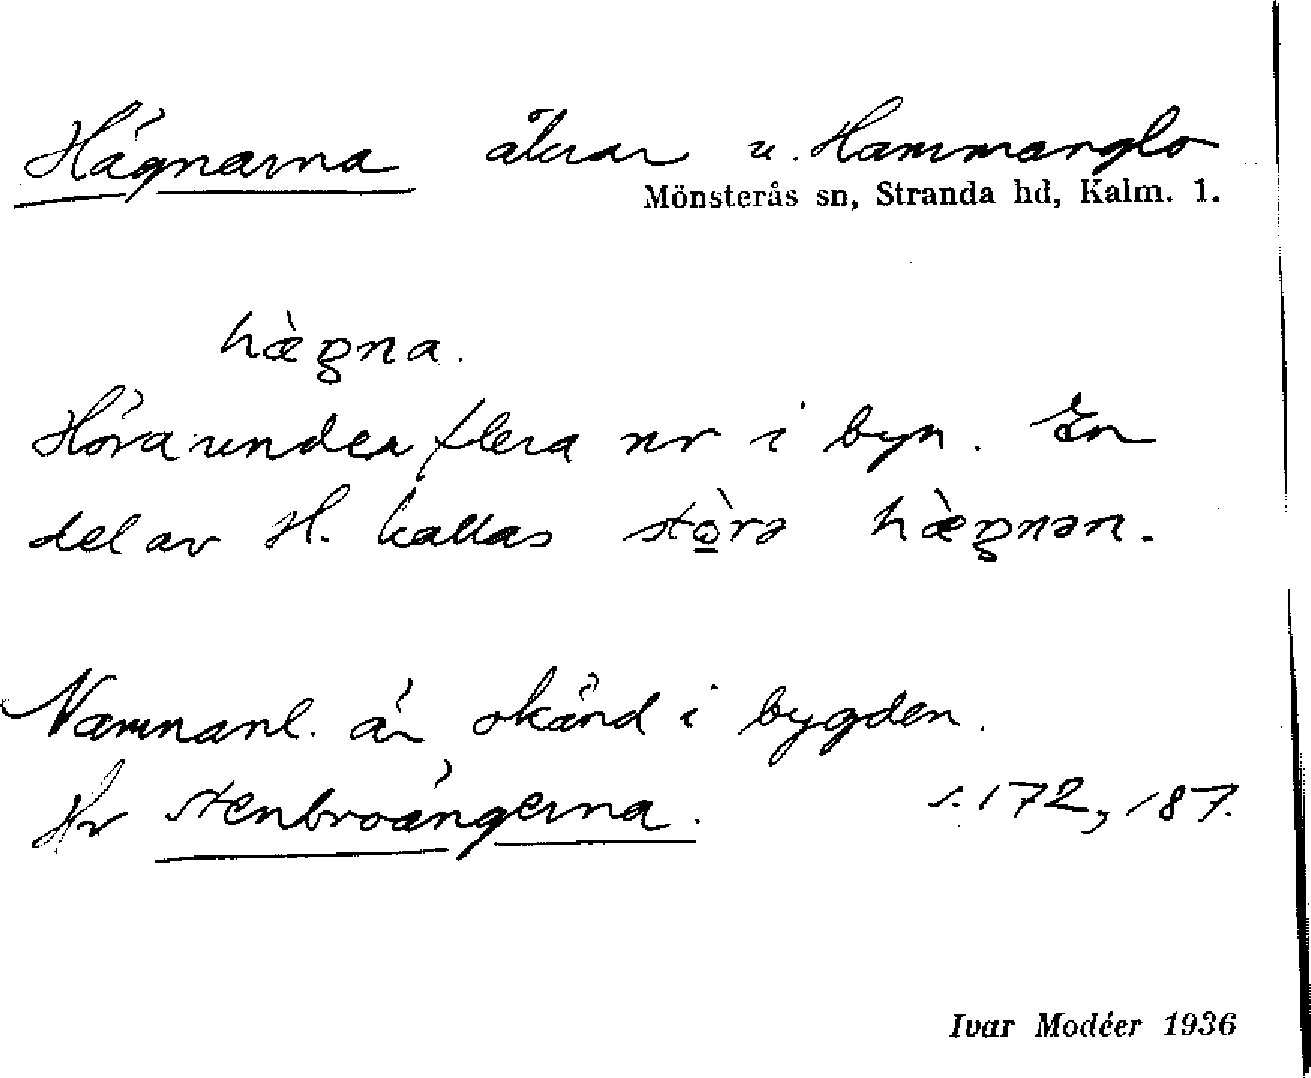 Hägnarna åkrar u. Hammarglo
Mönsterås sn, Stranda hd, Kalm. 1.
hæ̀gna.
Höra under flera nr i byn. En
del av H. kallas stò̱rə hæ̀gnən.
Namnanl. är okänd i bygden.
Jfr Stenbroängerna. s. 172, 187.
Ivar Modéer 1936